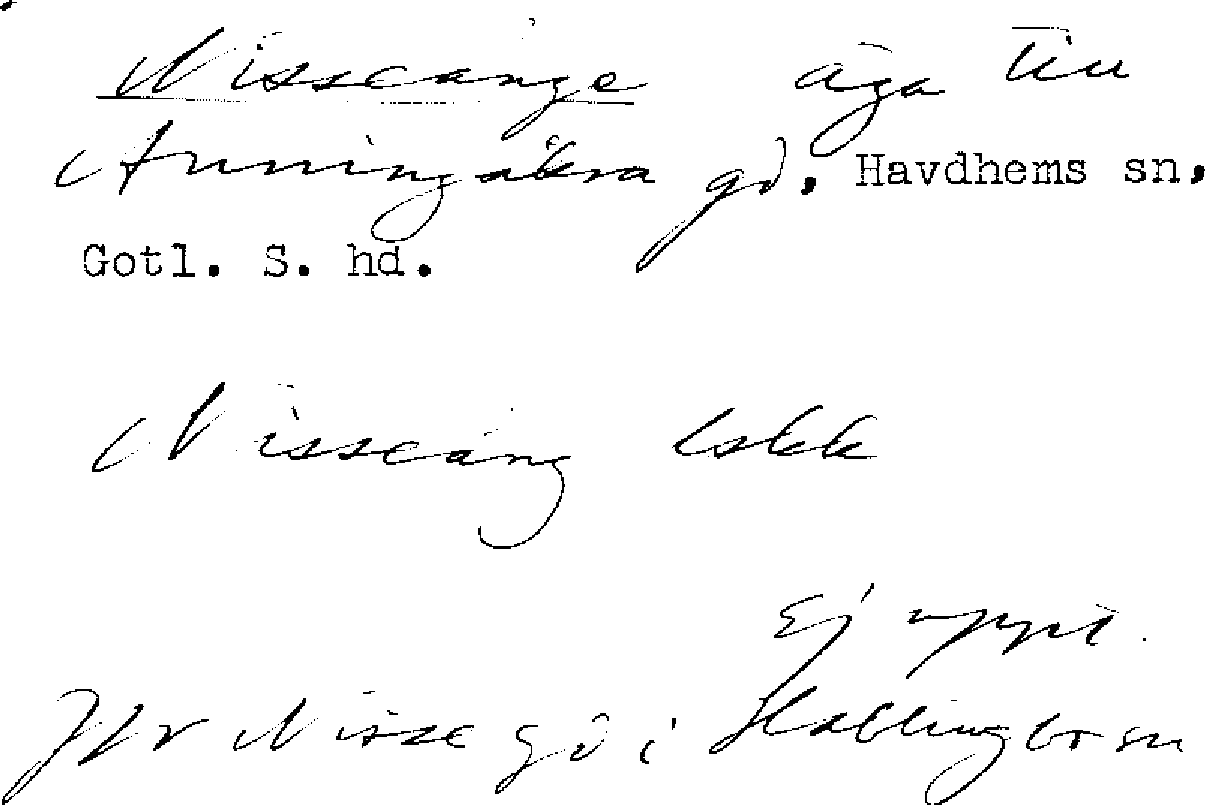 Nisseänge äga till
Anningåkra gd. Havdhems sn.
Gotl. S. hd.
Nisseäng Eskk
Ej uppt.
Jfr Nisse gd i Hablingbo sn